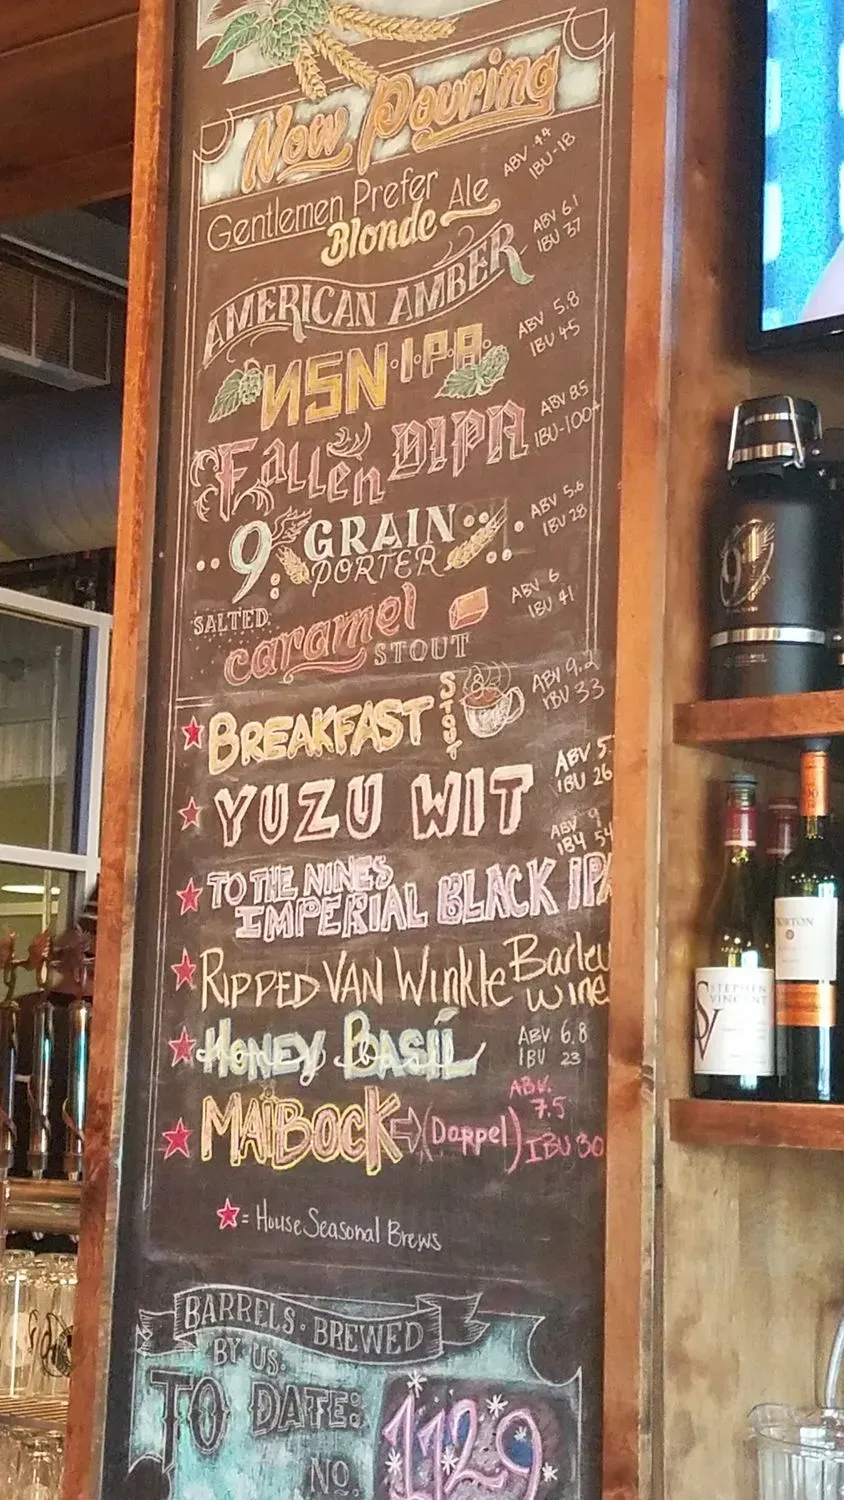 Now Pouring
Gentlemen Prefer
Blonde Ale
ABV 4.4
IBU-18
AMERICAN AMBER
ABV 6.1
IBU 37
NSN·I·P·A·
ABV 5.8
IBU 45
Fallen DIPA
ABV 8.5
IBU-100+
9 GRAIN
PORTER
ABV 5.6
IBU 28
SALTED
caramel
STOUT
ABV 6
IBU 41
BREAKFAST
ABV 9.2
IBU 33
YUZU WIT
ABV 5.
IBU 26
TO THE NINES
IMPERIAL BLACK IPA
ABV 9
IBU 54
RIPPED VAN Winkle Barley
wine
HONEY BASIL
ABV 6.8
IBU 23
MAIBOCK (Doppel)
ABV.
7.5
IBU 30
= House Seasonal Brews
BARRELS·BREWED
BY US.
TO DATE:
NO.
1129
9
STEPHEN
VINCENT
SV